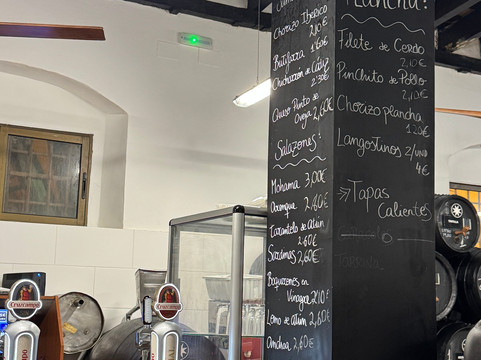 Chorizo Ibérico
2,10€
Butifarra
1'60€
Chicharrón de Cádiz
2'30€
Queso Punto de
Oveja 2,60€
Salazones:
Mohama 3,00€
2,40€
Tarantelo de Atún
2,60€
Sardinas 2,60€
Boquerones en
Vinagre 2'10€
Lomo de Atún 2,60€
Anchoa 2,60€
Plancha:
Filete de Cerdo
2,10€
Pinchito de Pollo
2,10€
Chorizo plancha
1,20€
Langostinos 2/unid
4€
Tapas
Calientes
Cruzcampo
Cruzcampo